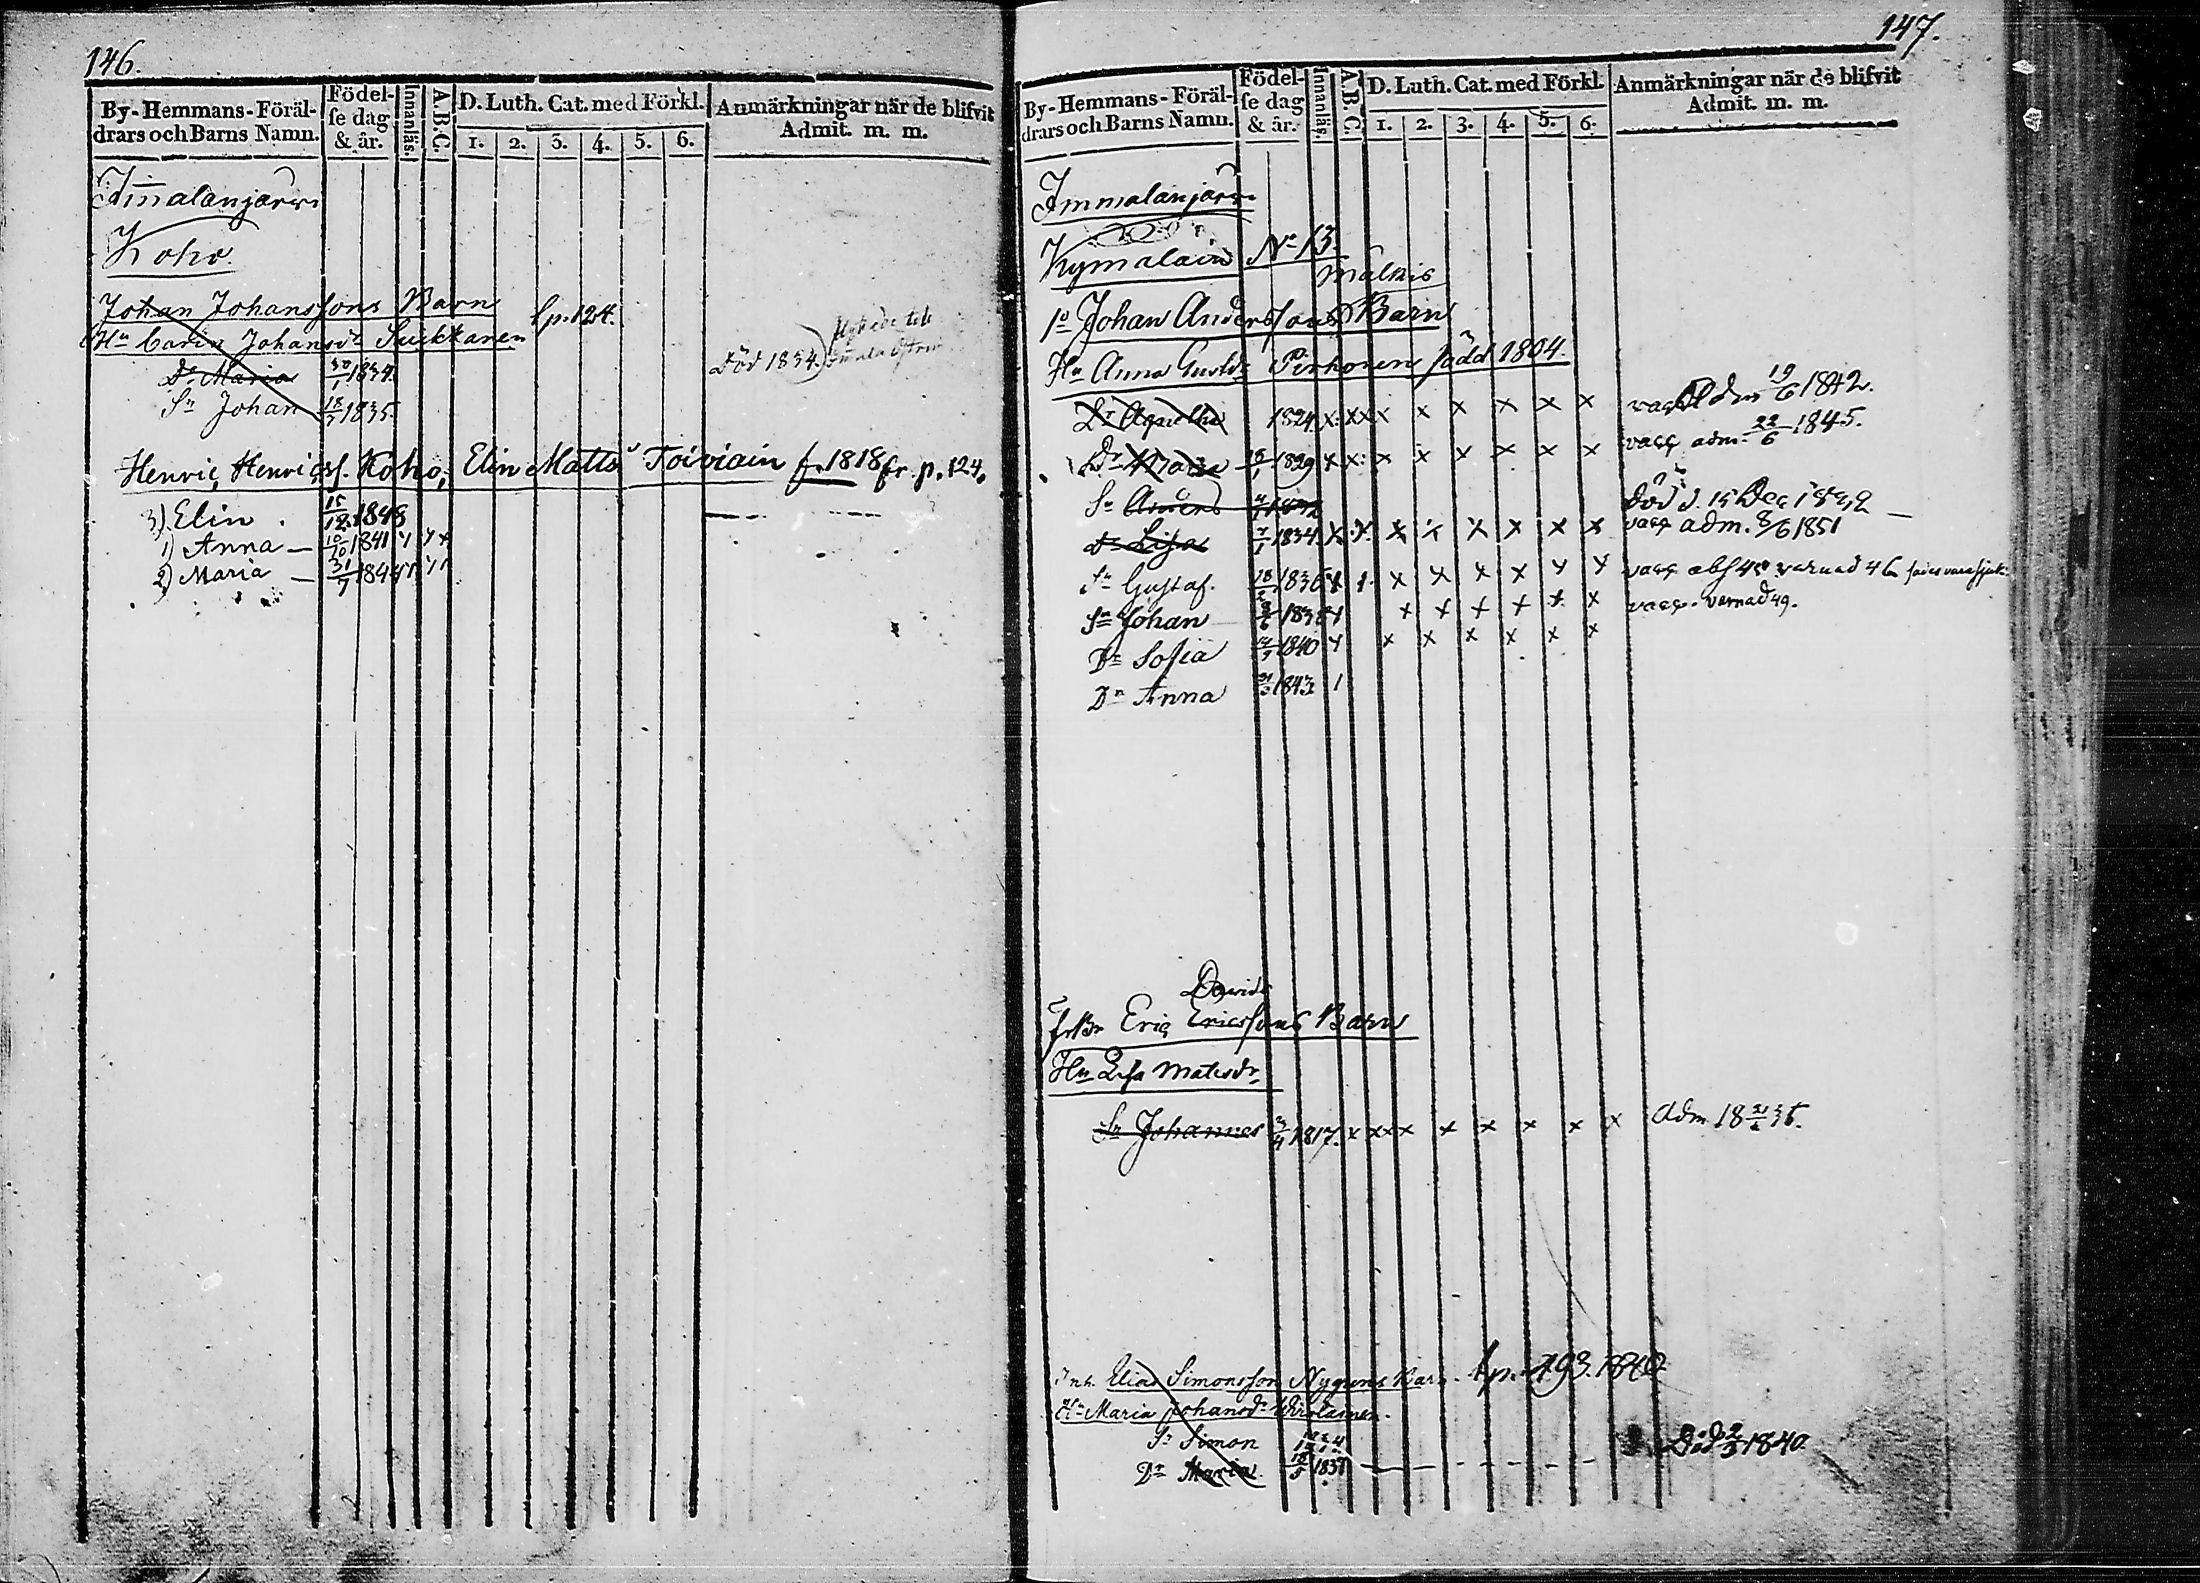 146.
By-Hemmans-Föräl-
drars och Barns Namn.
Födel-
ſe dag
& år.
Innanläs.
A.B.C.
D. Luth. Cat. med Förkl.
1. 2. 3. 4. 5. 6.
Anmärkningar när de blifvit
Admit. m. m.
Im̄alanjärvi
Koho.
Johan Johanssons Barn fp. 124.
Hu Carin Johansdr Suikkanen
Dr Maria 30/1 1834. Död 1834.
Sn Johan 18/7 1835.
Henric Henricss. Koho, Elin Matts Toiviain f. 1818 fr. p. 124.
3) Elin. 15/12 1848
1) Anna 10/10 1841
2) Maria 31/7 1844
147.
By-Hemmans-Föräl-
drars och Barns Namn.
Födel-
ſe dag
& år.
Innanläs.
A.B.C.
D. Luth. Cat. med Förkl.
1. 2. 3. 4. 5. 6.
Anmärkningar när de blifvit
Admit. m. m.
Immalanjärvi
Kymalain No 13.
Målkis
1o Johan Anderssons Barn
Hu Anna Gustdr Pirhonen född 1804.
Dr Agnetha 1824. x x x x x x x x x 19/6 1842.
Dr Maria 1829 x x x x x x x x vacc adm. 22/6 1845.
Sn Anders död d. 15 Dec
Dr Lisa 7/1 1834. x x x x x x x x vacc adm. 8/6 1851
Sn Gustaf. 18/2 1836 x x x x x x vacc
Sn Johan 1838 x x x x x x vacc. vernad 49.
Dr Sofia 1840 x x x x x x
Dr Anna 1843
Davids
Eric Ericssons Barn
Hu Lisa Matsdr
Sn Johannes 3/4 1817. x x x x x x x x x Adm 18
Inh. Elias Simonsson Nygrens Barn. fp. 193. 1840
Hu Maria Johansdr
Sn Simon
Dr Maria. 18/5 1837 Död 2/3 1840.